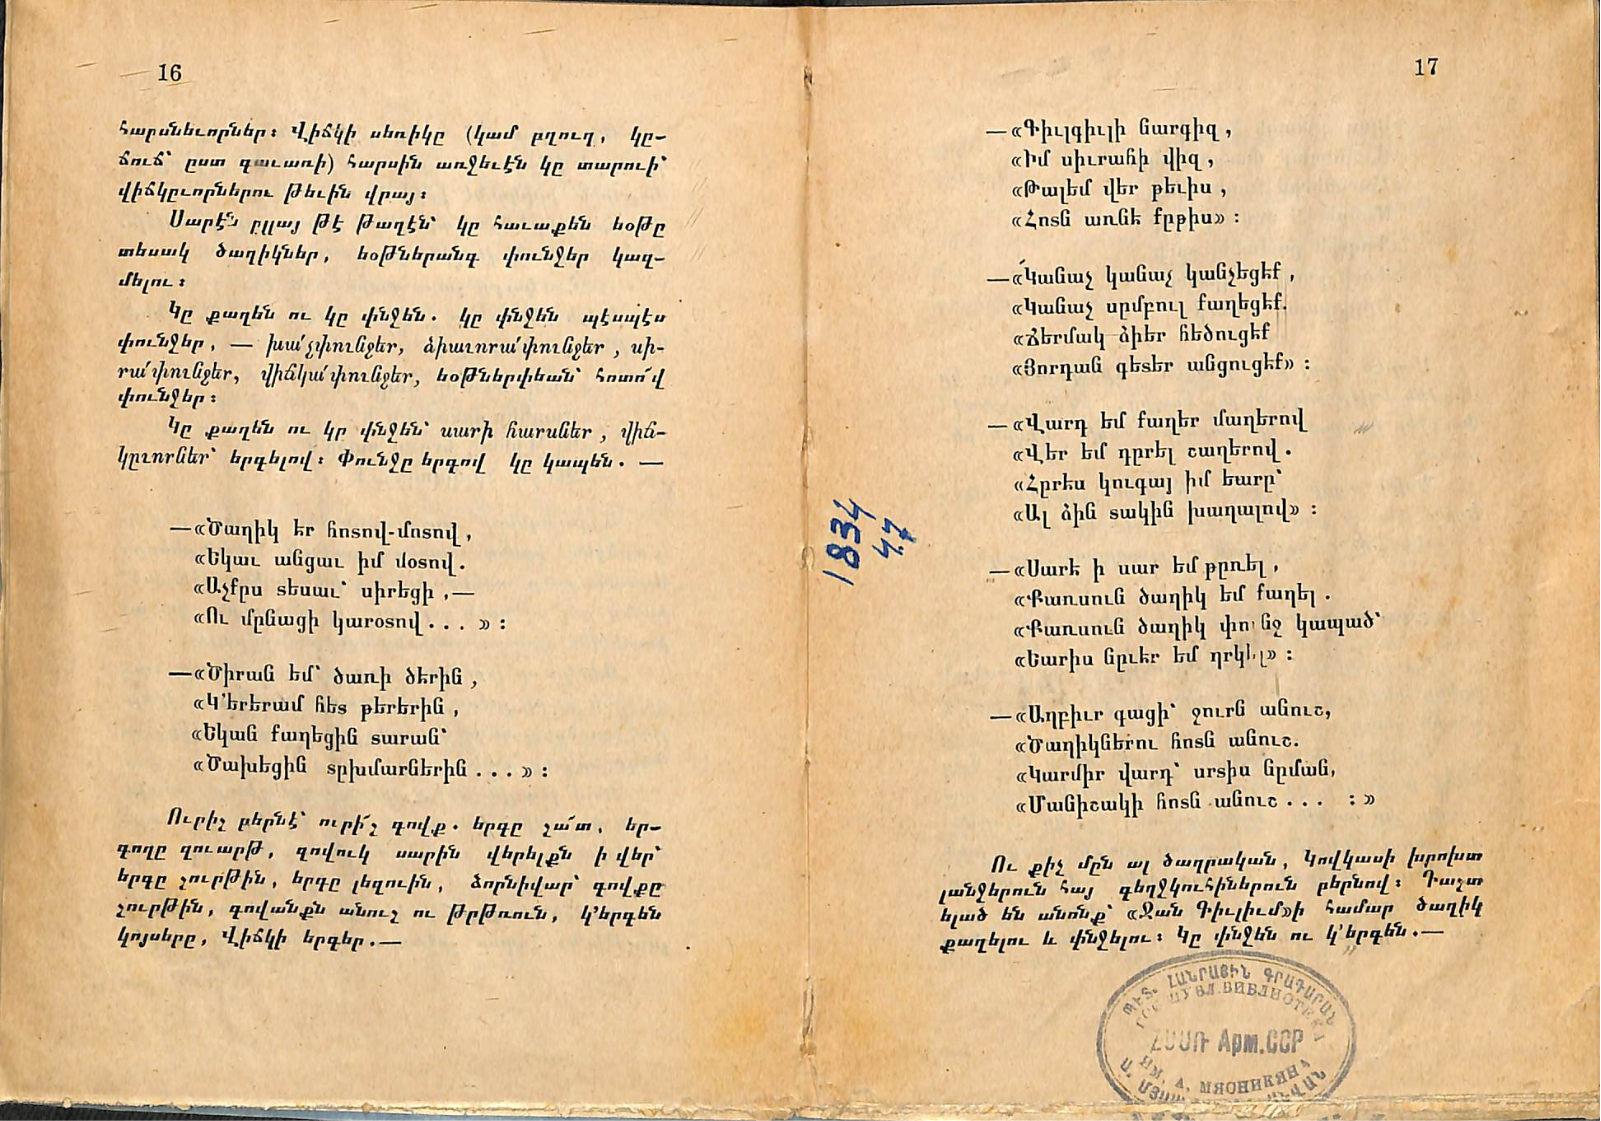 16
հարսնեւորներ։ Վիճկի սեռիկը (կամ բղուղ, կը-
ճուճ՝ ըստ գաւառի) հարսին առջեւէն կը տարուի՝
վիճկըւորներու թեւին վրայ։
Սարէ՜ն ըլլայ թէ թաղէն՝ կը հաւաքեն եօթը
տեսակ ծաղիկներ, եօթներանգ փունջեր կազ-
մելու։
Կը քաղեն ու կը փնջեն. կը փնջեն պէսպէս
փունջեր, — խա՛չփունջեր, ձիաւորա՛փունջեր, սի-
րա՛փունջեր, վիճկա՛փունջեր, եօթներփեան՝ հոտո՜վ
փունջեր։
Կը քաղեն ու կը փնջեն՝ սարի հարսներ, վիճ-
կըւորներ՝ երգելով։ Փունջը երգով կը կապեն. —
—«Ծաղիկ եր հոտով-մոտով,
«Եկաւ անցաւ իմ մօտով.
«Աչքըս տեսաւ՝ սիրեցի,—
«Ու մընացի կարօտով...»։
—«Ծիրան եմ՝ ծառի ծերին,
«Կ՚երերամ հետ թերերին,
«Եկան քաղեցին տարան՝
«Ծախեցին տըխմարներին...»։
Ուրիշ բերնէ՝ ուրի՜շ գովք. երգը շա՜տ, եր-
գողը զուարթ, զովուկ սարին վերելքն ի վեր՝
երգը շուրթին, երգը լեզուին, ձորնիվար՝ գովքը
շուրթին, գովանքն անուշ ու թրթռուն, կ՚երգեն
կոյսերը, Վիճկի երգեր.—
17
—«Գիւլգիւլի նարգիզ,
«Իմ սիւրահի վիզ,
«Թալեմ վեր թեւիս,
«Հոտն առնե քըթիս»։
—«Կանաչ կանաչ կանչեցեք,
«Կանաչ սըմբուլ քաղեցեք.
«Ճերմակ ձիեր հեծուցեք
«Յորդան գետեր անցուցեք»։
—«Վարդ եմ քաղեր մաղերով
«Վեր եմ դըրել շաղերով.
«Հըրես կուգայ իմ եարը՝
«Ալ ձին տակին խաղալով»։
—«Սարե ի սար եմ թըռել,
«Քառսուն ծաղիկ եմ քաղել.
«Քառսուն ծաղիկ փունջ կապած՝
«Եարիս նըւեր եմ ղրկել»։
—«Աղբիւր գացի՝ ջուրն անուշ,
«Ծաղիկներու հոտն անուշ.
«Կարմիր վարդ՝ սրտիս նըման,
«Մանիշակի հոտն անուշ... ։»
Ու քիչ մըն ալ ծաղրական, Կովկասի խրոխտ
լանջերուն հայ գեղջկուհիներուն բերնով։ Դաշտ
ելած են անոնք՝ «Ջան Գիւլիւմ»ի համար ծաղիկ
քաղելու և փնջելու։ Կը փնջեն ու կ՚երգեն.—
1834
47
ՊԵՏ. ՀԱՆՐԱՅԻՆ ԳՐԱԴԱՐԱՆ
ПУБЛ. БИБЛИОТЕКА
ՀՍՍՌ Арм.ССР
ИМ. А. МЯСНИКЯНА